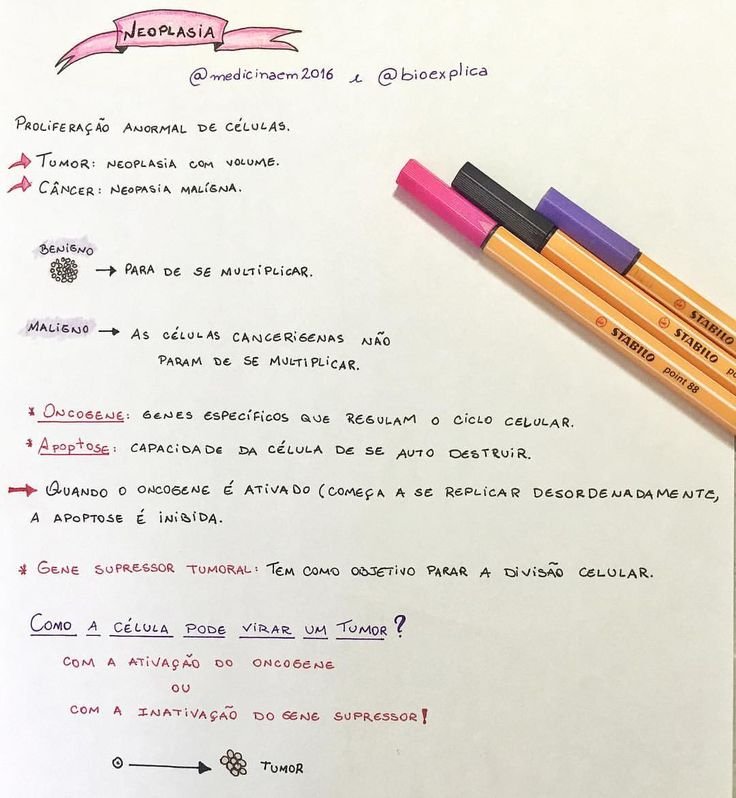 NEOPLASIA
@medicinaem2016 e @bioexplica
PROLIFERAÇÃO ANORMAL DE CÉLULAS.
TUMOR: NEOPLASIA COM VOLUME.
CÂNCER: NEOPASIA MALÍGNA.
BENIGNO
→ PARA DE SE MULTIPLICAR.
MALIGNO → AS CÉLULAS CANCERÍGENAS NÃO
PARAM DE SE MULTIPLICAR.
* ONCOGENE: GENES ESPECÍFICOS QUE REGULAM O CICLO CELULAR.
* APOPTOSE: CAPACIDADE DA CÉLULA DE SE AUTO DESTRUIR.
→ QUANDO O ONCOGENE É ATIVADO (COMEÇA A SE REPLICAR DESORDENADAMENTE,
A APOPTOSE É INIBIDA.
* GENE SUPRESSOR TUMORAL: TEM COMO OBJETIVO PARAR A DIVISÃO CELULAR.
COMO A CÉLULA PODE VIRAR UM TUMOR?
COM A ATIVAÇÃO DO ONCOGENE
OU
COM A INATIVAÇÃO DO GENE SUPRESSOR!
TUMOR
STABILO
STABILO
STABILO point 88